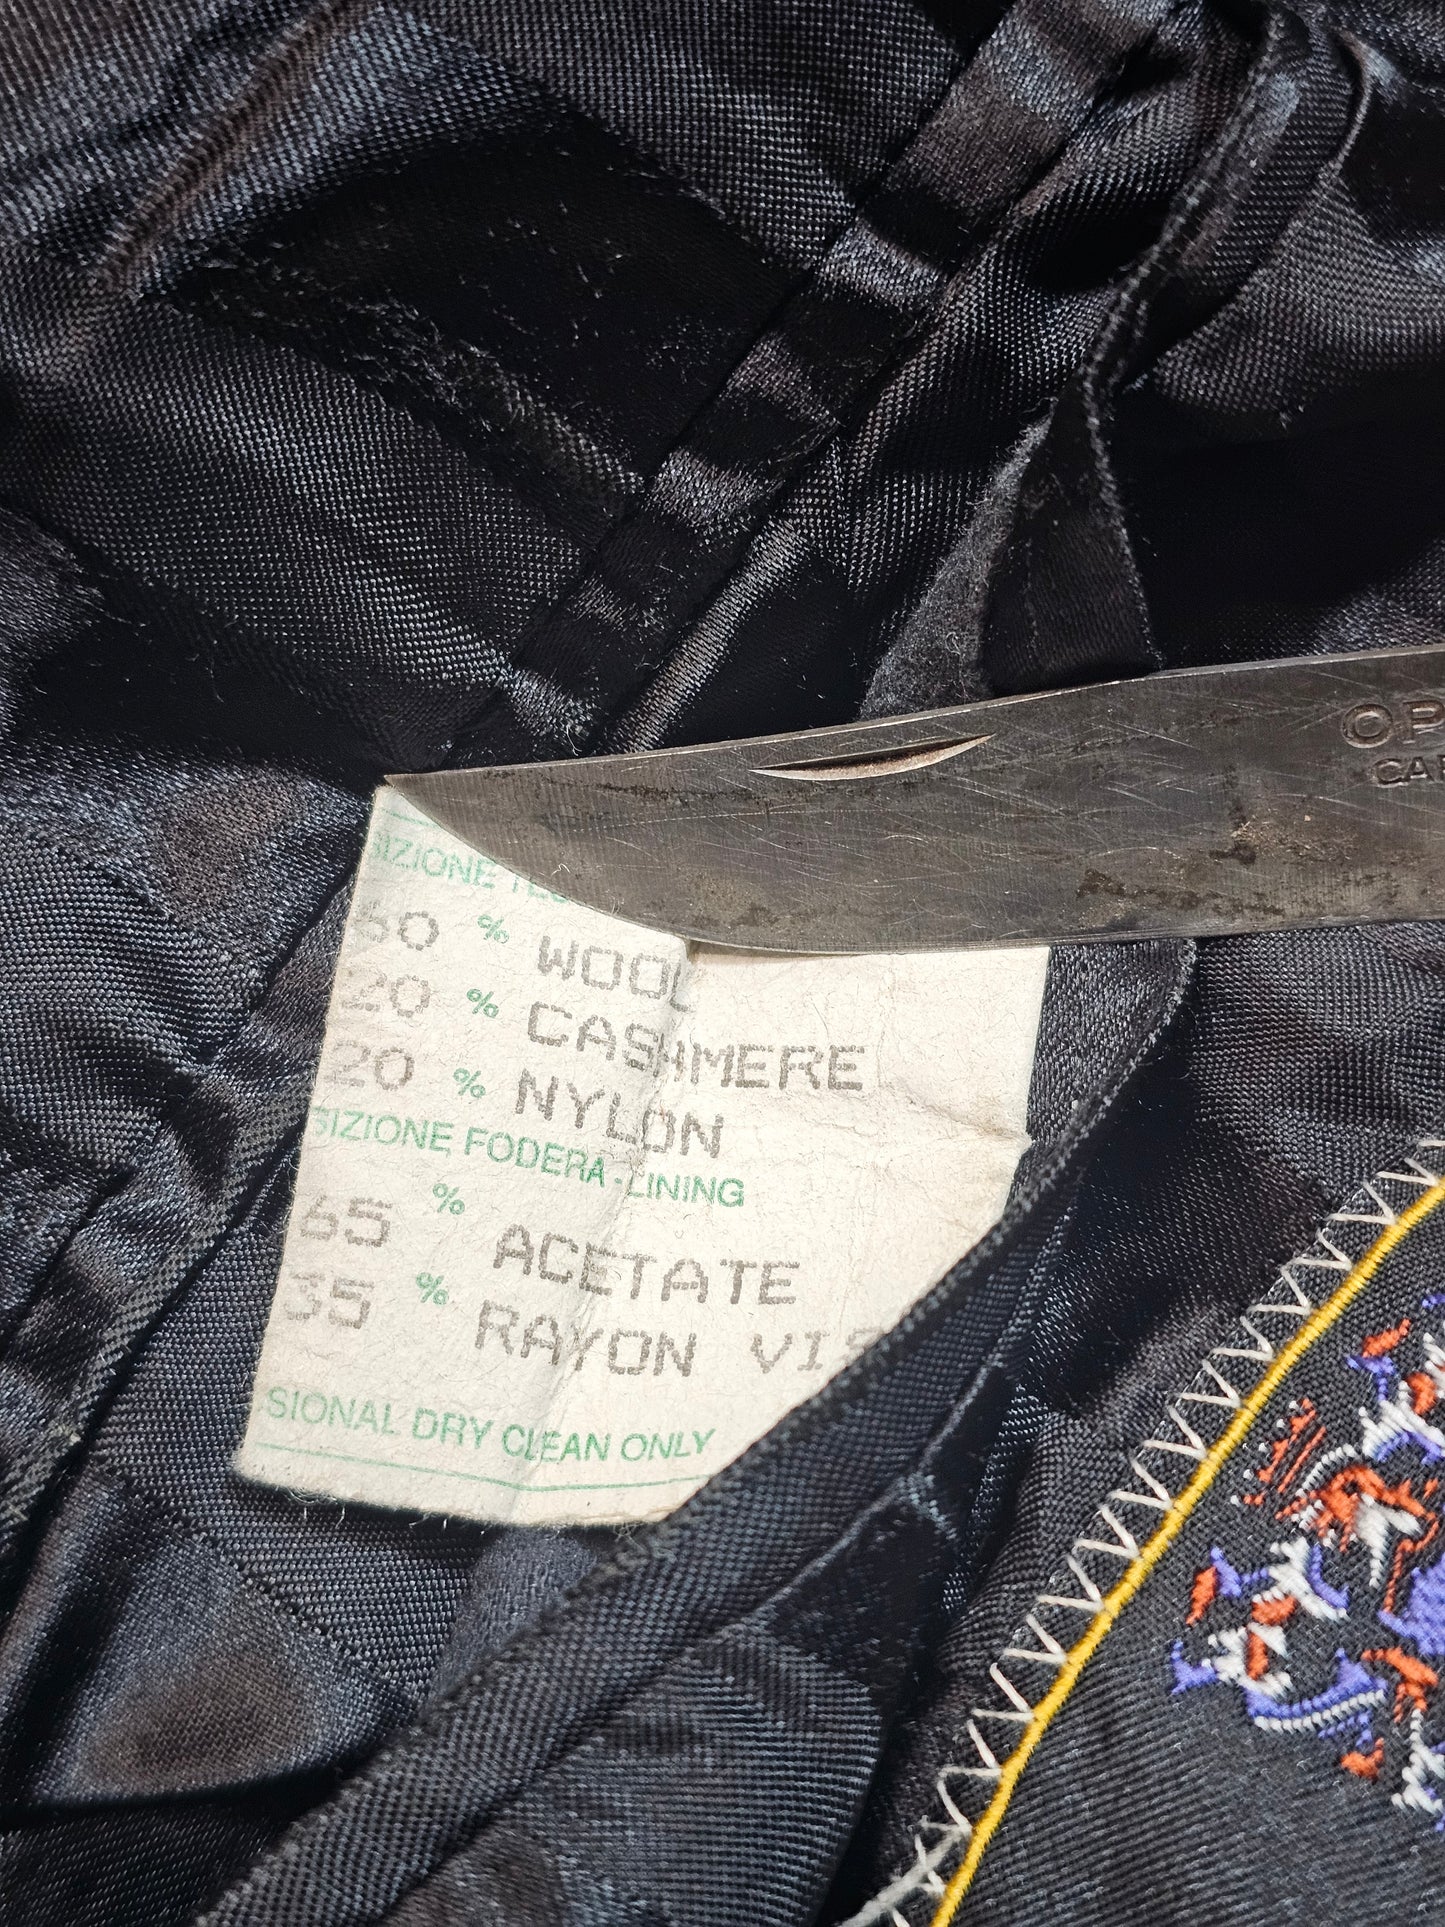 OP
CAR
SIZIONE TES
60 % WOOL
20 % CASHMERE
20 % NYLON
SIZIONE FODERA - LINING
65 % ACETATE
35 % RAYON VIS
SIONAL DRY CLEAN ONLY